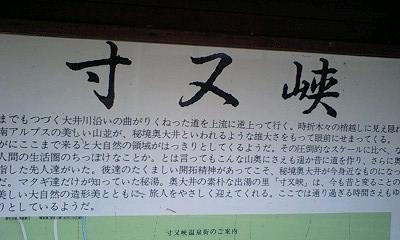 寸又峡
までもつづく大井川沿いの曲がりくねった道を上流に逆上って行く。時折木々の梢越しに見え隠れ
南アルプスの美しい山並が、秘境奥大井といわれるような雄大さをもって眼前にせまってくる。
がにここまで来ると大自然の領域がはっきりとしてくるようだ。その圧倒的なスケールに比べ、な
人間の生活圏のちっぽけなことか。とは言ってもこんな山奥にさえも遥か昔に道を作り、さらに奥
指した先人達がいた。彼達のたくましい開拓精神があってこそ、秘境奥大井が今身近なものになっ
だ。マタギ達だけが知っていた秘湯。奥大井の素朴な出湯の里「寸又峡」は、今も昔と変ることの
美しい大自然の造形美とともに、旅人をやさしく迎えてくれる。ここでは通り過ぎる時間さえもゆ
りとしているようだ。
寸又峡温泉街のご案内